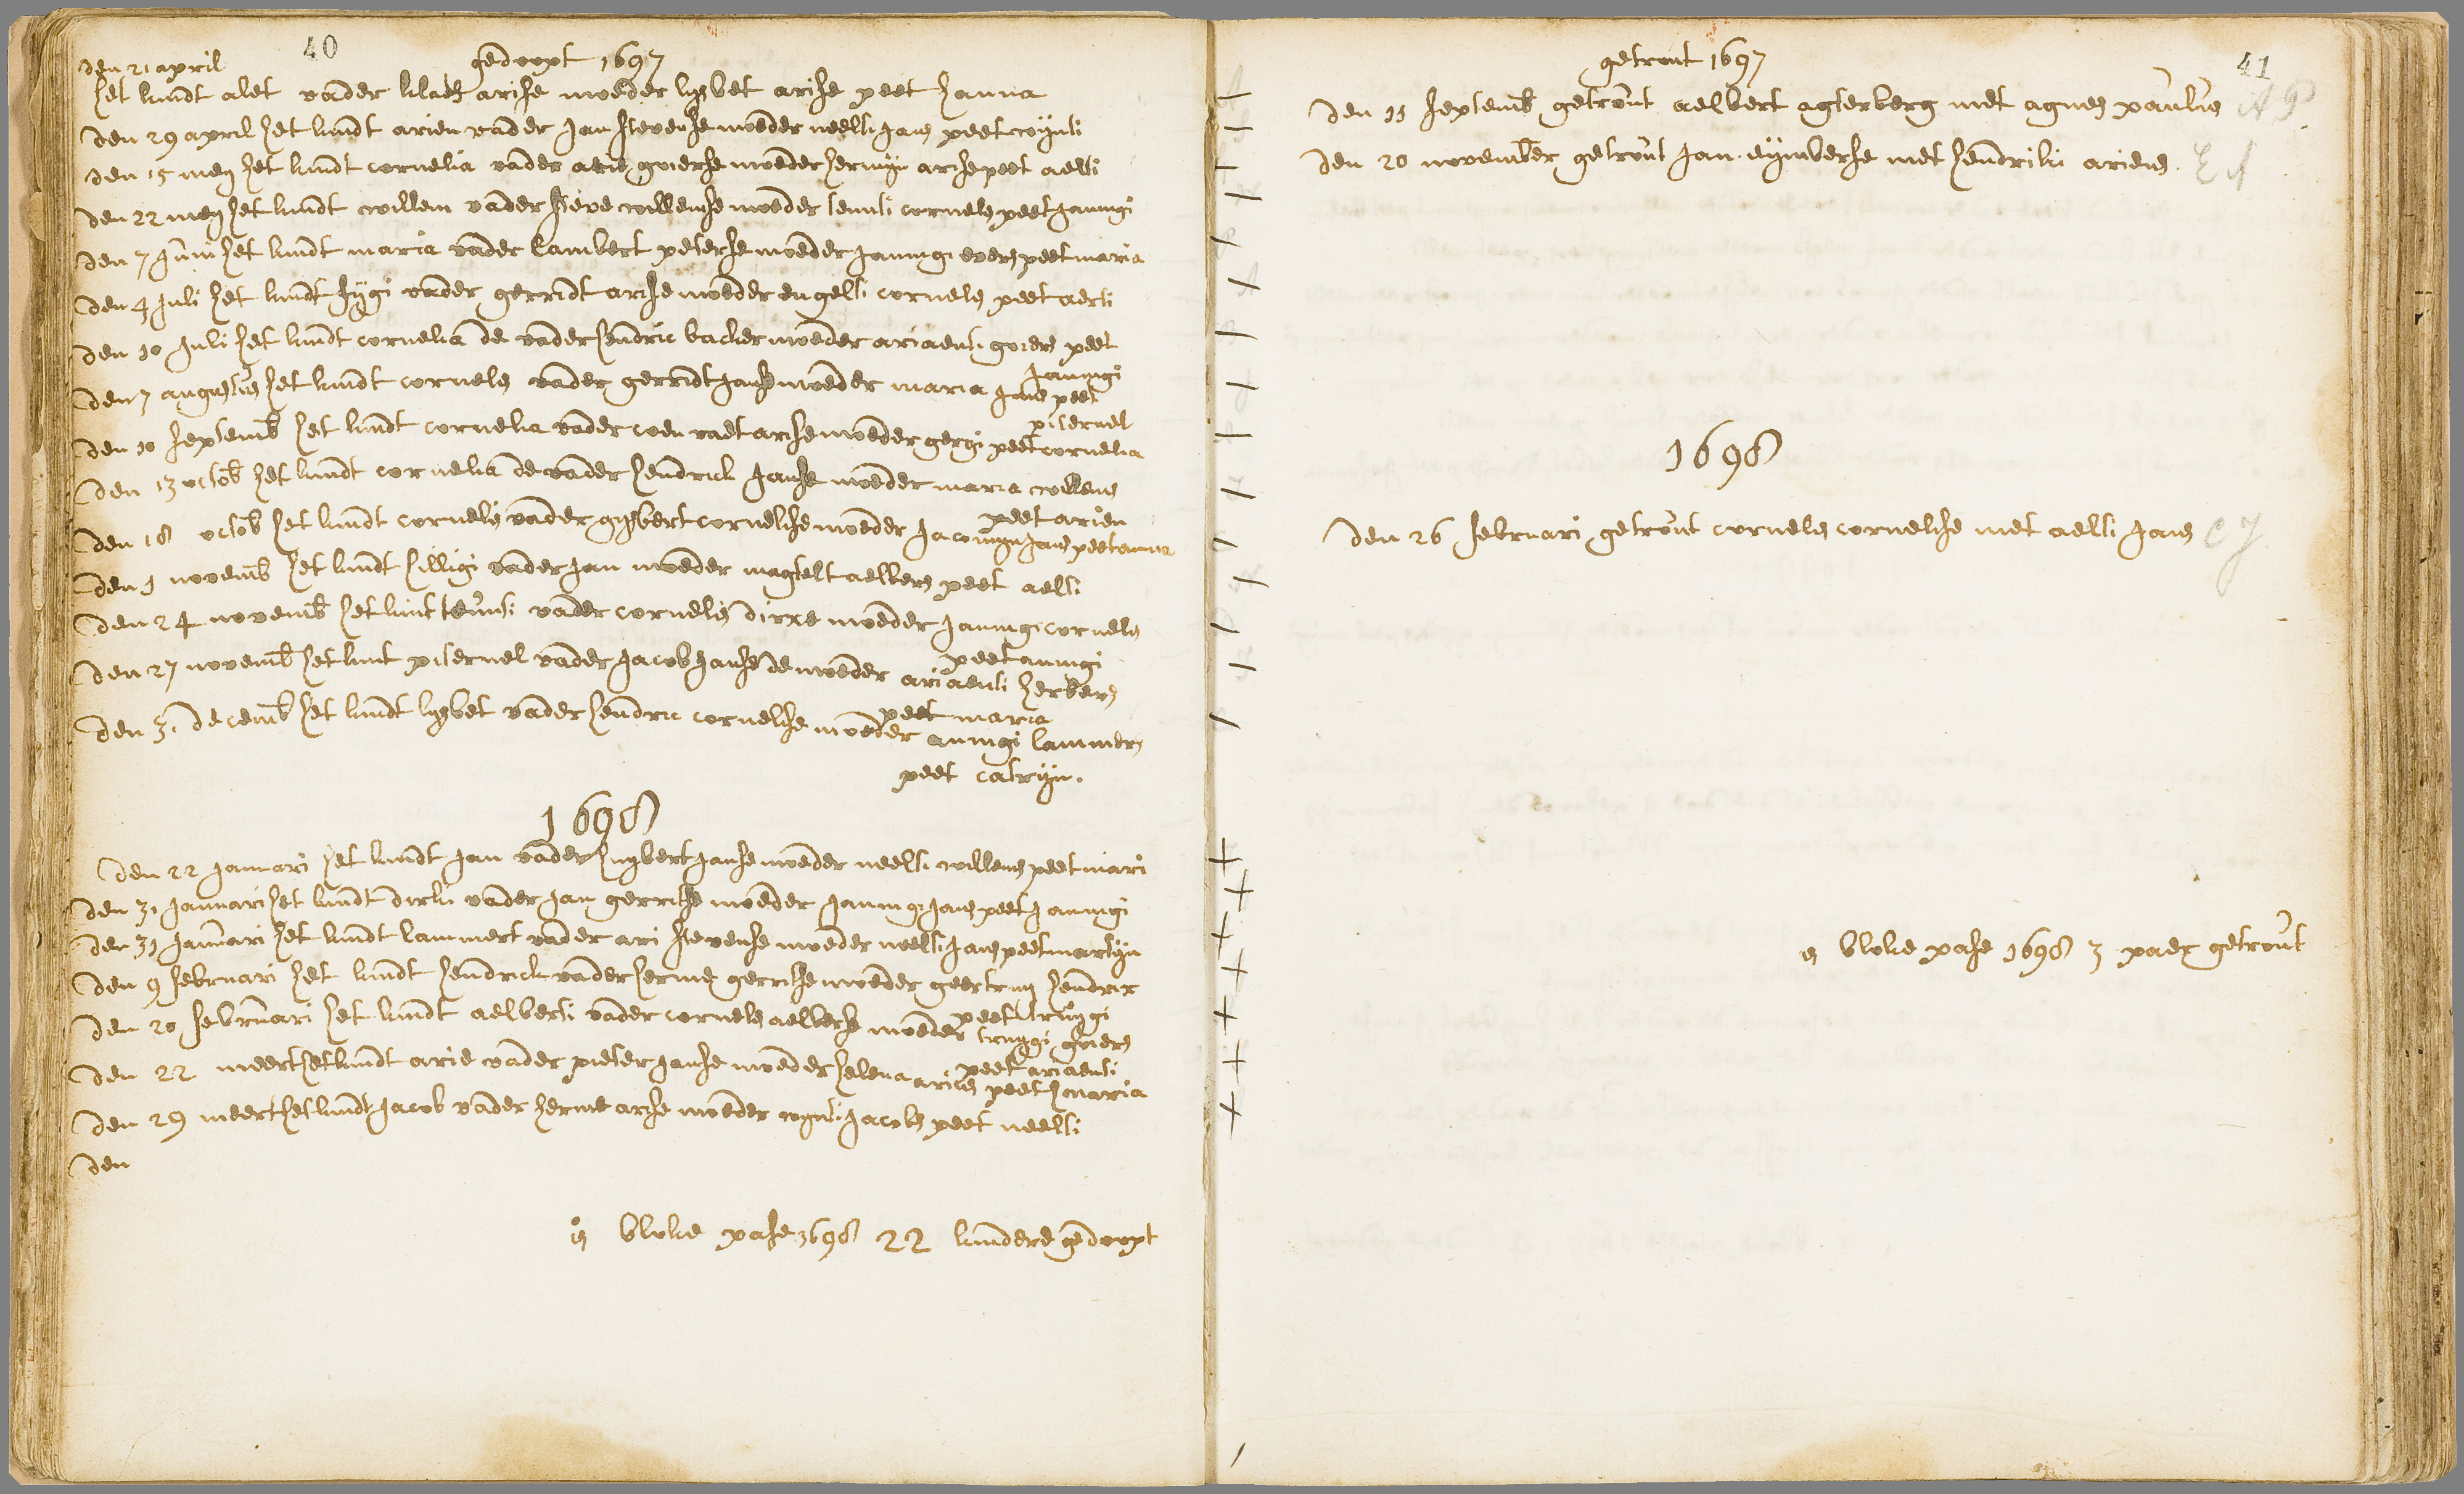 40
gedoopt 1697
den 21 april
het kindt alet vader klaes arise moeder lysbet arise peet hanna
den 29 april het kindt arien vader Jan stevense moeder neelti Jans peet wynti
den 15 mey het kindt cornelia vader arie goerse moeder hermyn arise peet aelti
den 22 mey het kindt willem vader steve willemse moeder teunti cornels peet Janingi
den 7 Juni het kindt maria vader lambert peterse moeder Janingi evers peet maria
den 4 Juli het kindt sygi vader gerridt arise moeder engelti cornels peet aerti
den 10 Juli het kindt cornelia de vader hendric backer moeder ariaenti goiers peet
Janingi
den 7 augustus het kindt cornels vader gerridt Janse moeder maria Jans peet
piternel
den 10 septemb het kindt cornelia vader coenraet arise moeder gergi peet cornelia
den 13 octob het kindt cornelia de vader hendrick Janse moeder maria willems
peet arien
den 18 octob het kindt cornelis vader gysbert cornelise moeder Jacomyn Jans peet anna
den 1 novemb het kindt hilligi vader Jan moeder magtelt aelbers peet aelti
den 24 novemb het kint teunti vader cornelis dirxe moeder Janingi cornels
peet annigi
den 27 novemb het kint piternel vader Jacob Janse de moeder ariaenti herbers
peet maria
den 31 decemb het kindt lysbet vader hendric cornelise moeder annigi lammers
peet catryn.
1698
den 22 Januari het kindt Jan vader huybert Janse moeder neelti willems peet mari
den 31 Januari het kindt dirki vader Jan gerritse moeder Janingi Jans peet Janingi
den 31 Januari het kindt lammert vader ari stevense moeder neelti Jans peet martyn
den 9 februari het kindt hendrick vader herme gerritse moeder geertruy hendrix
peet truygi
den 20 februari het kindt aelberti vader cornels aelberse moeder truygi goiers
peet ariaenti
den 22 meert het kindt arie vader pieter Janse moeder helena aries peet maria
den 29 meert het kindt Jacob vader herme arise moeder wynti Jacobs peet neelti
den
is bloke pase 1698 22 kindere gedoopt
41
getrout 1697
den 11 septemb getrout aelbert agterberg met agnes paulus
den 20 november getrout Jan eymberse met hendriki ariens.
1698
den 26 februari getrout cornels cornelise met aelti Jans CJ
is bloke pase 1698 3 paer getrout